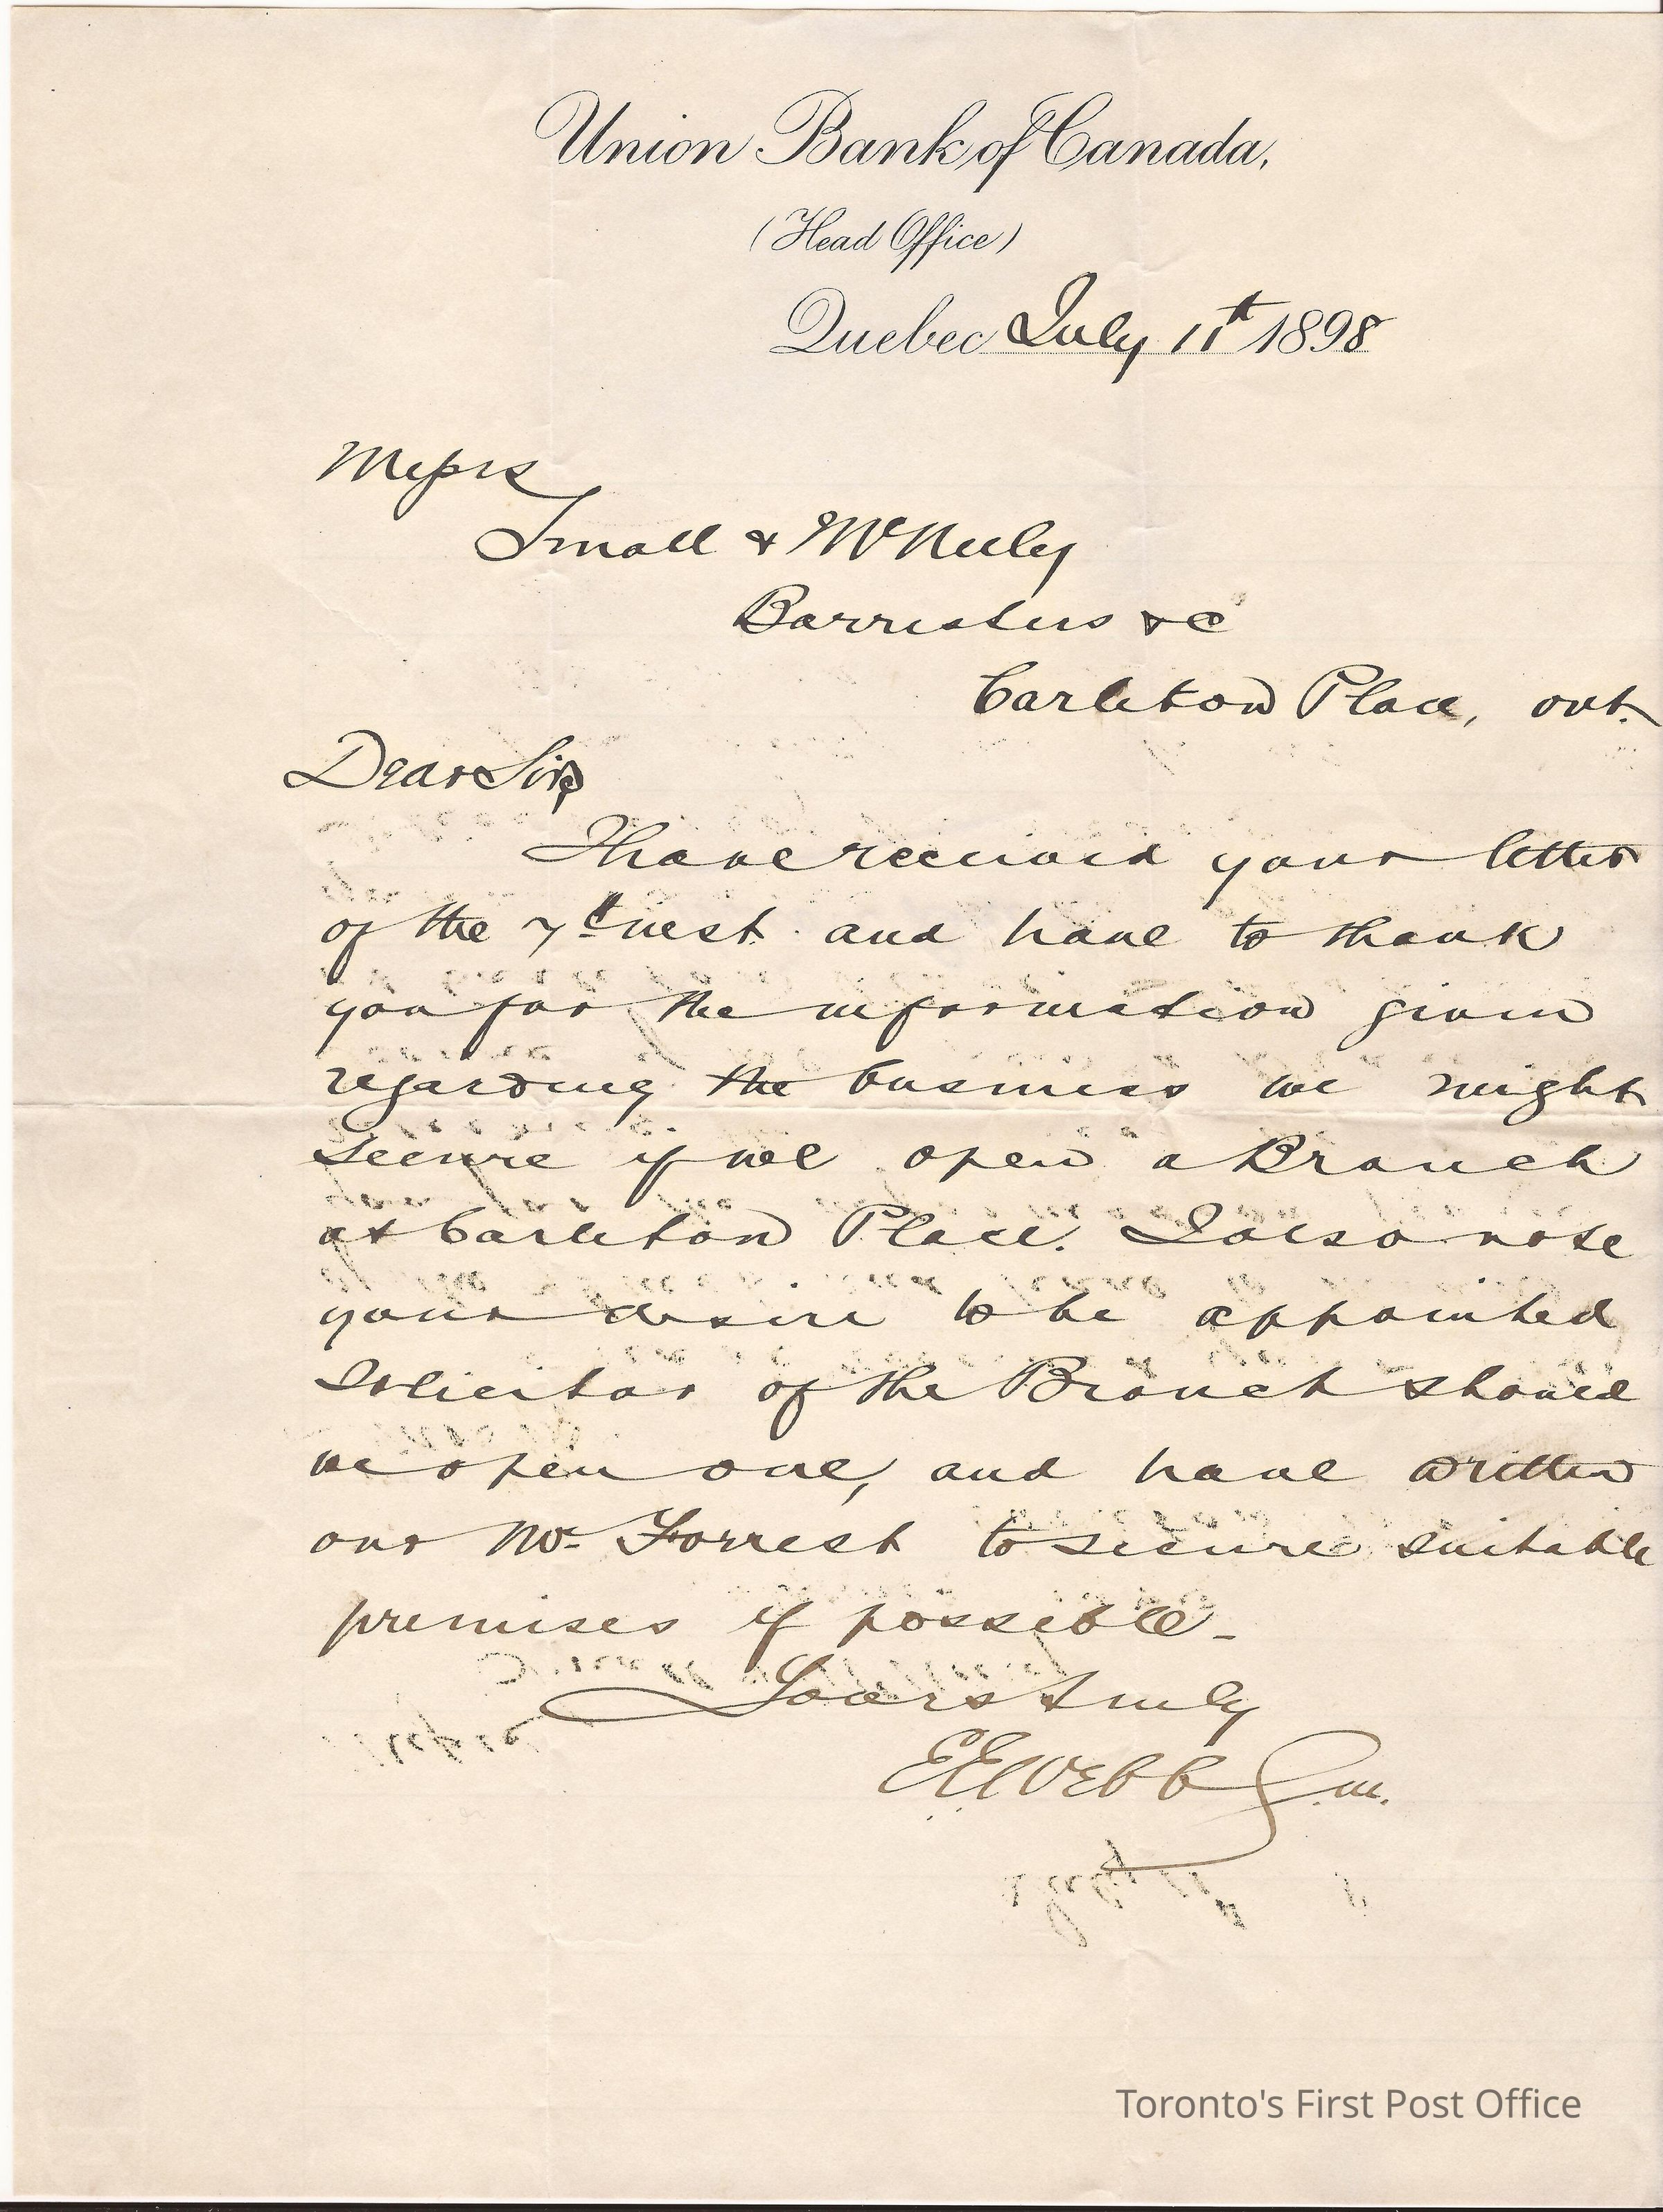 Union Bank of Canada,
(Head Office)
Quebec July 11th 1898
Messrs
Small & McNeely
Barristers &c
Carleton Place, Ont.
Dear Sirs
I have received your letter
of the 7th inst. and have to thank
you for the information given
regarding the business we might
secure if we open a Branch
at Carleton Place. I also note
your desire to be appointed
Solicitor of the Branch should
we open one, and have written
our Mr. Forrest to secure suitable
premises if possible.
Yours truly
EEWebb G.M.
Toronto's First Post Office